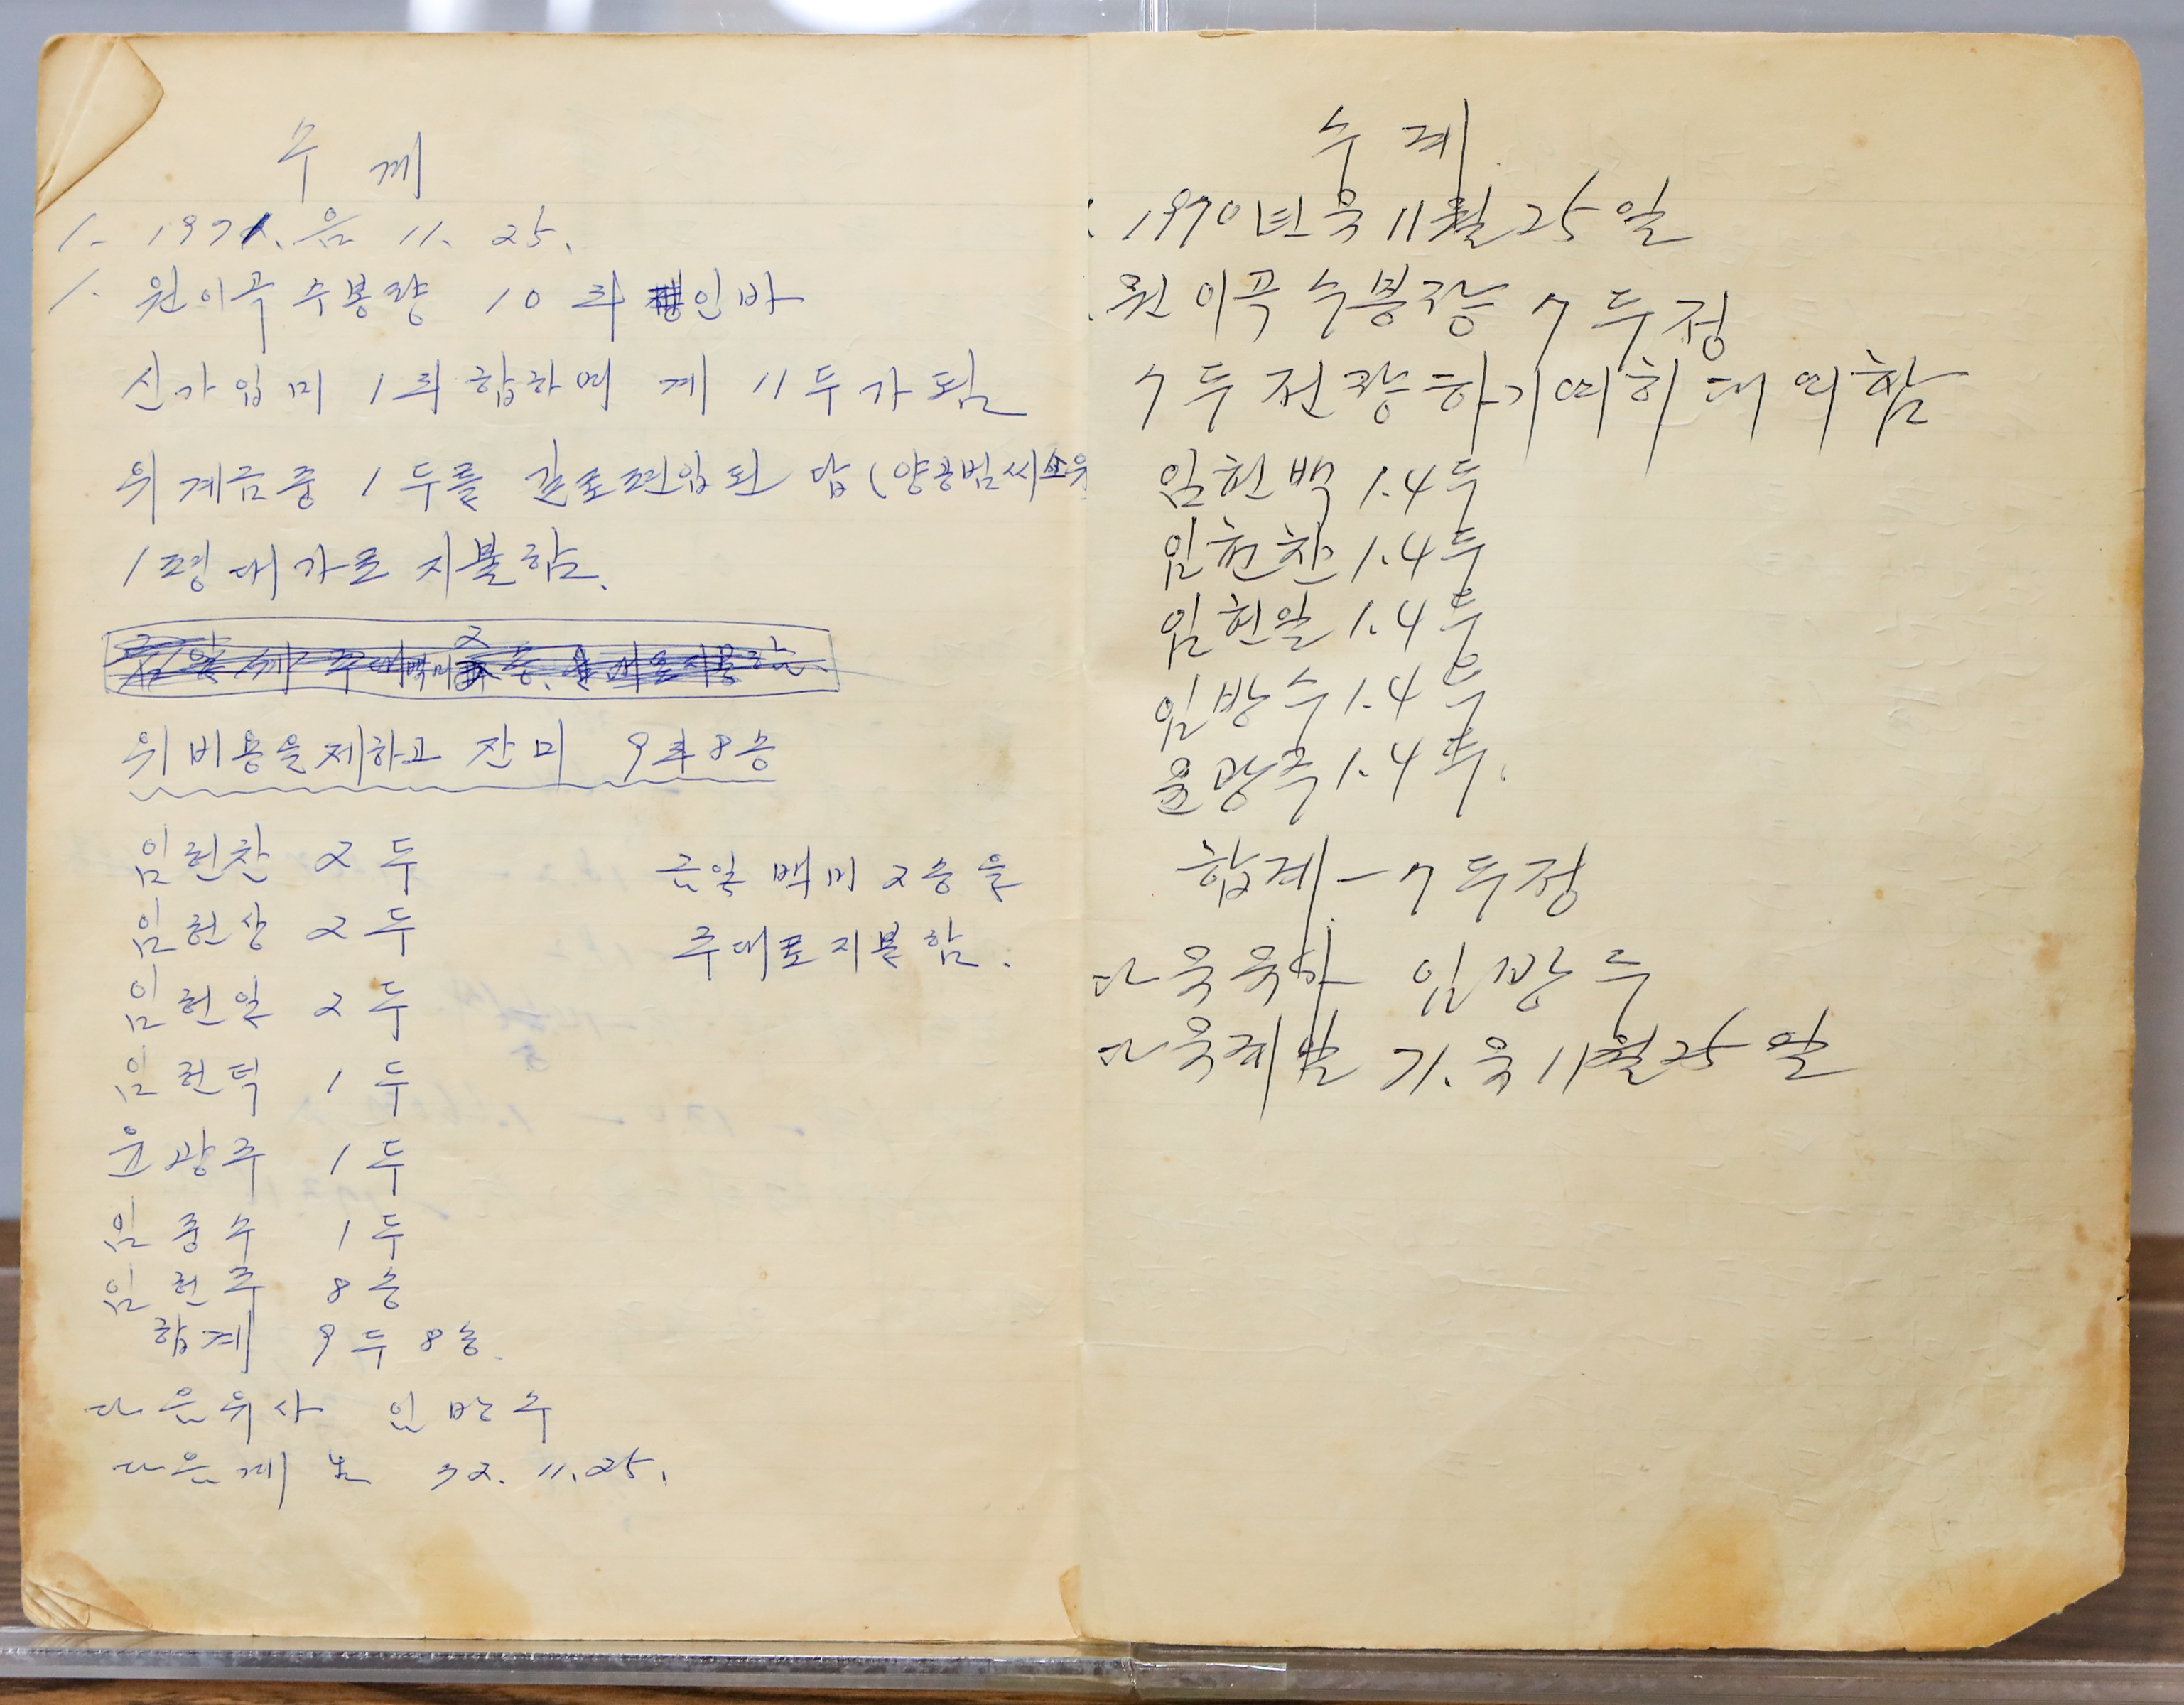 수께
1. 1971. 음 11. 25.
1. 원이곡 수봉량 10두 인바
신가입미 1두 합하여 계 11두가 됨
위 계금중 1두를 길로편입된 답 (양공범씨소유
1평 대가로 지불함.
위 비용을 제하고 잔미 9두8승
임헌찬 2두
임헌상 2두
임헌일 2두
임헌택 1두
윤광주 1두
임종수 1두
임헌주 8승
합계 9두8승.
다음유사 임방수
다음계일 72. 11. 25.
금일 백미 2승을
주대로 지불함.
수계
1970년 음 11월 25일
원이곡 수봉량 7두정
7두 전량 하기여히 대여함
임헌백 1.4두
임헌찬 1.4두
임헌일 1.4두
임방수 1.4두
윤광주 1.4두.
합계 - 7두정
다음유사 임방수
다음계일 71. 음 11월 25일